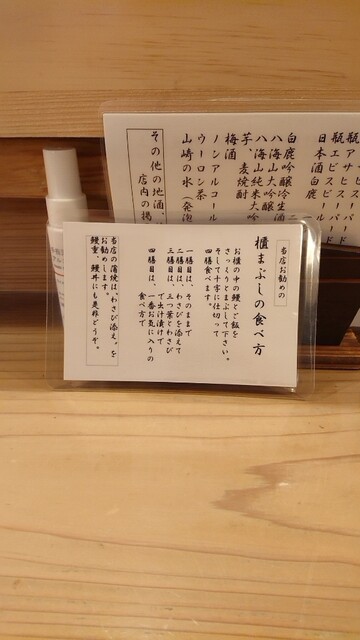 瓶エビスビール
日本酒
白鹿吟醸冷生酒
八海山大吟醸
八海山純米大吟
芋、麦焼酎
梅酒
ノンアルコール
ウーロン茶
山崎の水（発泡
その他の地酒、
店内の掲
当店お勧めの
櫃まぶしの食べ方
お櫃の中の鰻とご飯を
さっくりとまぶして下さい。
そして十字に仕切って
四膳食べます。
一膳目は、そのままで
二膳目は、わさびを添えて
三膳目は、三つ葉とわさび
で出汁漬けで
四膳目は、一番お気に入りの
食べ方で
当店の蒲焼は、わさび添え、を
お勧めします。
鰻重、鰻丼にも是非どうぞ。